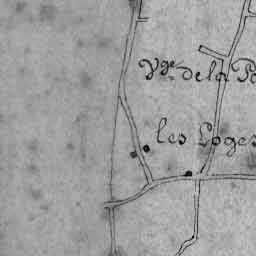 Vge. de la
les Loges